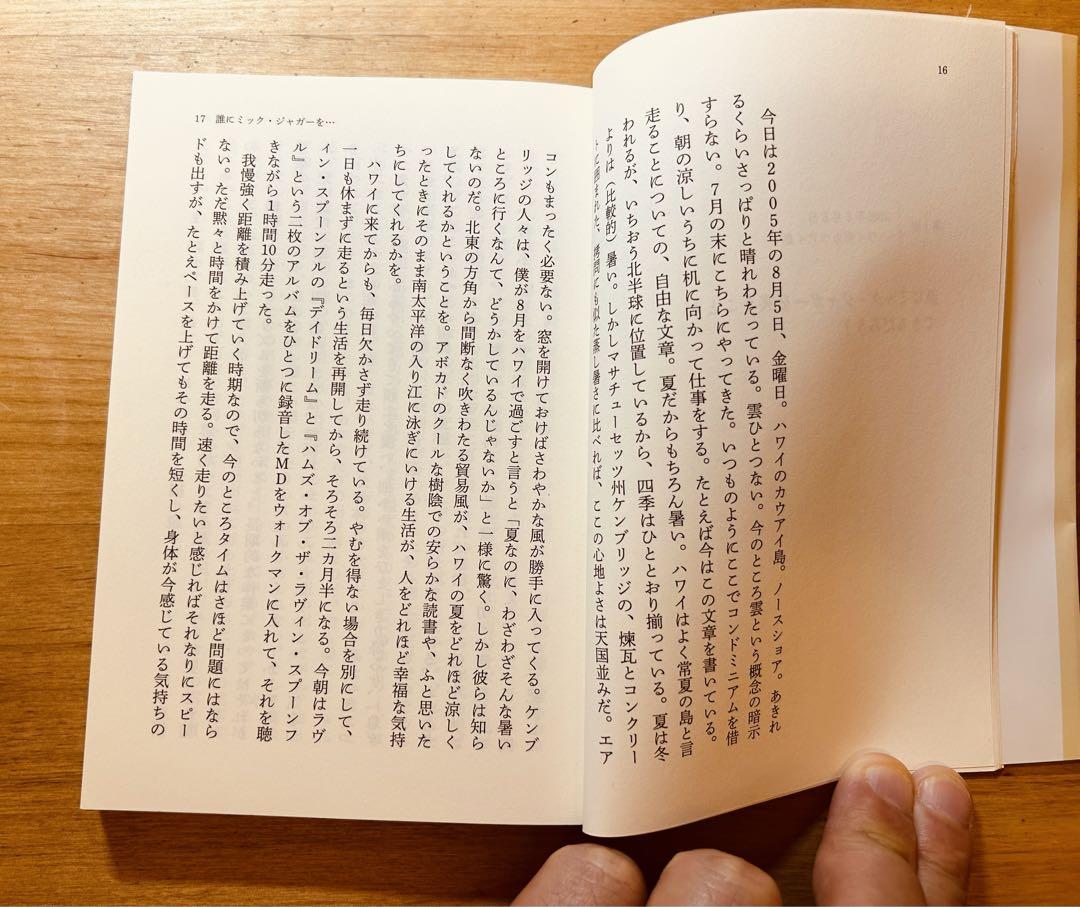 16
今日は2005年の8月5日、金曜日。ハワイのカウアイ島。ノースショア。あきれ
るくらいさっぱりと晴れわたっている。雲ひとつない。今のところ雲という概念の暗示
すらない。7月の末にこちらにやってきた。いつものようにここでコンドミニアムを借
り、朝の涼しいうちに机に向かって仕事をする。たとえば今はこの文章を書いている。
走ることについての、自由な文章。夏だからもちろん暑い。ハワイはよく常夏の島と言
われるが、いちおう北半球に位置しているから、四季はひととおり揃っている。夏は冬
よりは（比較的）暑い。しかしマサチューセッツ州ケンブリッジの、煉瓦とコンクリー
に囲まれた、拷問にも似た蒸し暑さに比べれば、ここの心地よさは天国並みだ。エア
17 誰にミック・ジャガーを…
コンもまったく必要ない。窓を開けておけばさわやかな風が勝手に入ってくる。ケンブ
リッジの人々は、僕が8月をハワイで過ごすと言うと「夏なのに、わざわざそんな暑い
ところに行くなんて、どうかしているんじゃないか」と一様に驚く。しかし彼らは知ら
ないのだ。北東の方角から間断なく吹きわたる貿易風が、ハワイの夏をどれほど涼しく
してくれるかということを。アボカドのクールな樹陰での安らかな読書や、ふと思いた
ったときにそのまま南太平洋の入り江に泳ぎにいける生活が、人をどれほど幸福な気持
ちにしてくれるかを。
ハワイに来てからも、毎日欠かさず走り続けている。やむを得ない場合を別にして、
一日も休まずに走るという生活を再開してから、そろそろ二カ月半になる。今朝はラヴ
ィン・スプーンフルの『デイドリーム』と『ハムズ・オブ・ザ・ラヴィン・スプーンフ
ル』という二枚のアルバムをひとつに録音したMDをウォークマンに入れて、それを聴
きながら1時間10分走った。
我慢強く距離を積み上げていく時期なので、今のところタイムはさほど問題にはなら
ない。ただ黙々と時間をかけて距離を走る。速く走りたいと感じればそれなりにスピー
ドも出すが、たとえペースを上げてもその時間を短くし、身体が今感じている気持ちの